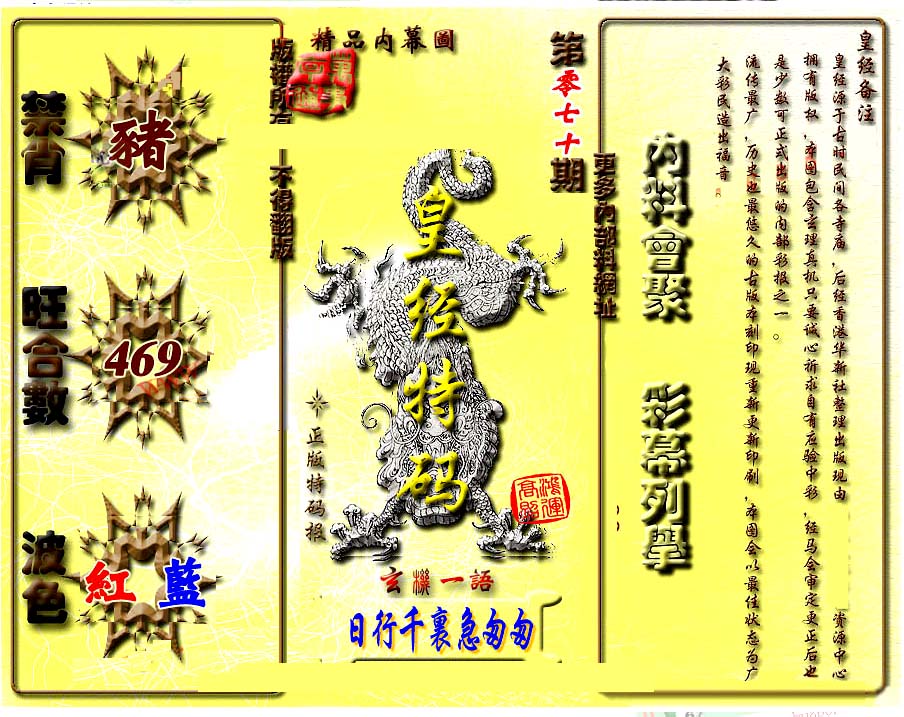 精品內幕圖
版權所有
不得翻版
第零七十期
更多內部料網址
禁肖
豬
旺合數
469
波色
紅 藍
皇经特码
正版特码报
鴻運高照
玄機一語
日行千裏急匆匆
內料會聚
彩幕列擧
皇经备注
皇经源于古时民间各寺庙,后经香港华新社整理出版现由 资源中心
拥有版权,本图包含玄理真机只要诚心祈求自有应验中彩,经马会审定更正后也
是少数可正式出版的内部彩报之一。
流传最广,历史也最悠久的古版本刻印现重新更新印刷,本图会以最佳状态为广
大彩民造出福音